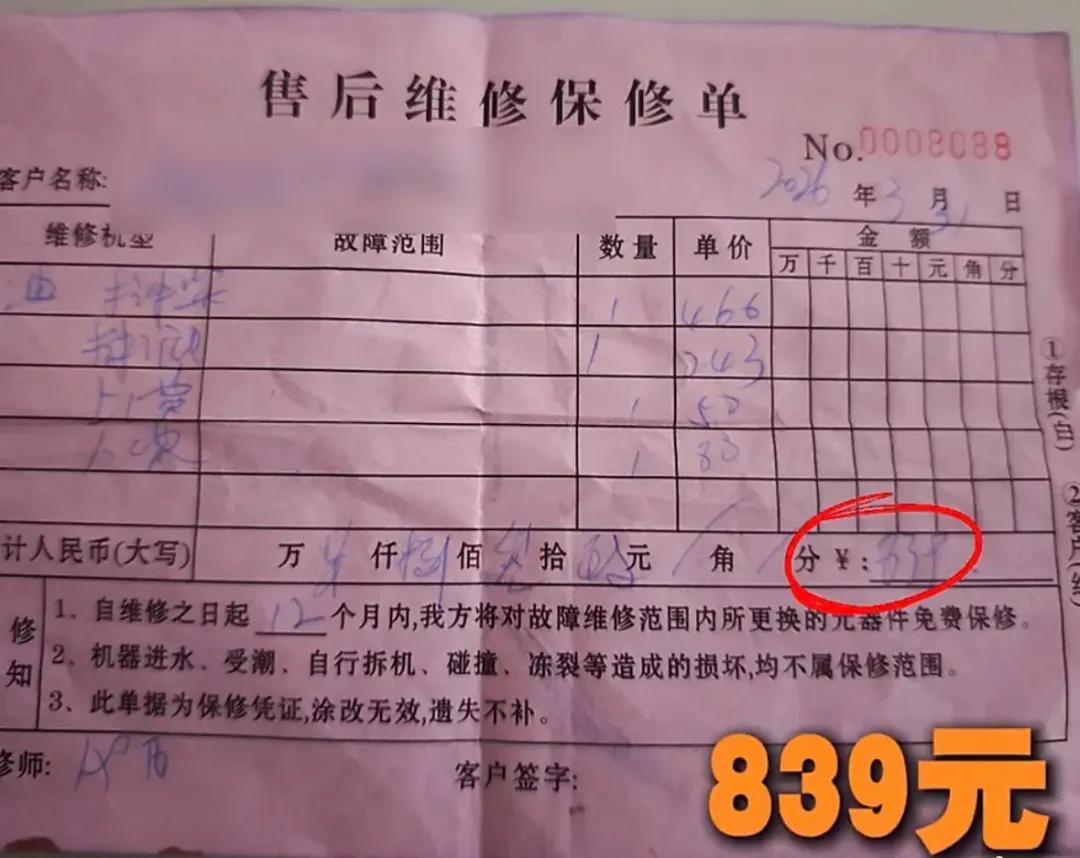 售后维修保修单
No.0008088
客户名称:
2026年3月31日
维修机型 故障范围 数量 单价 金额
万 千 百 十 元 角 分
油 1 466
1 243
上门费 1 50
人工费 1 80
①存根(白)
②客户(红)
计人民币(大写) 万 仟 捌 佰 叁 拾 玖 元 角 分 ¥: 839
修
知
1、自维修之日起 12 个月内,我方将对故障维修范围内所更换的元器件免费保修。
2、机器进水、受潮、自行拆机、碰撞、冻裂等造成的损坏,均不属保修范围。
3、此单据为保修凭证,涂改无效,遗失不补。
修师:
客户签字:
839元